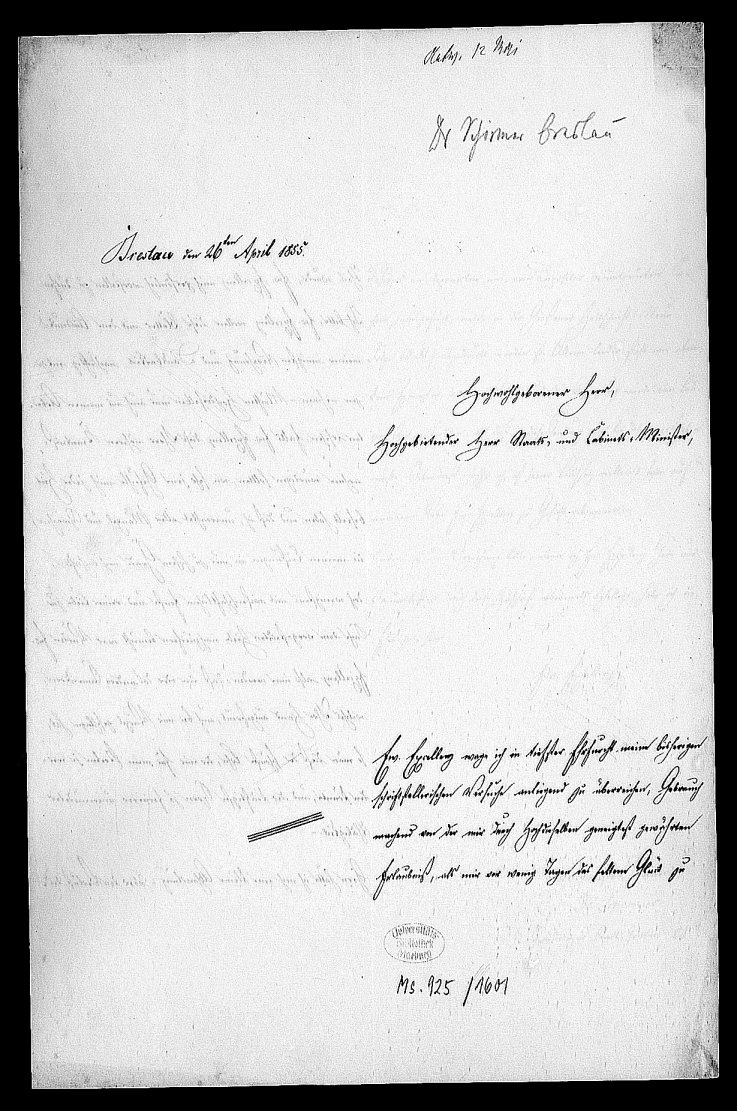 Antw. 12 Mai
Dr Schirmer Breslau
Breslau den 26ten April 1855.
Hochwohlgeborener Herr,
Hochgebietender Herr Staats- und Cabinets-Minister,
Ew. Excellenz wage ich in tiefster Ehrfurcht meine bisherigen
schriftstellerischen Versuche anliegend zu überreichen, Gebrauch
machend von der mir durch Hochdieselben geneigtest gewährten
Erlaubniß, als mir vor wenig Tagen das seltene Glück zu
Universitäts-
Bibliothek
Marburg
Ms. 725 /1601